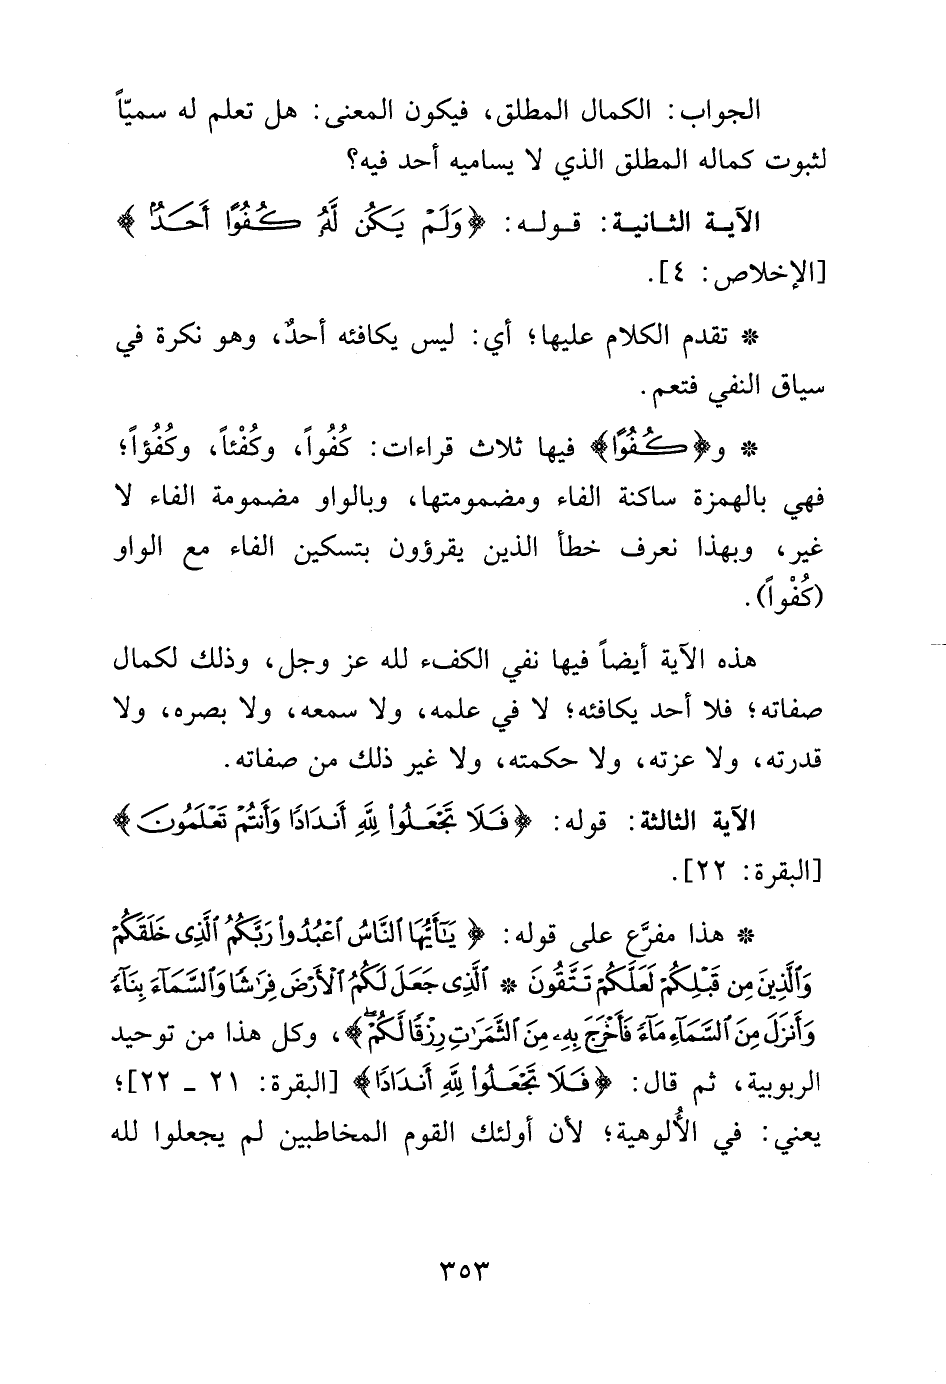 الجواب: الكمال المطلق، فيكون المعنى: هل تعلم له سميّاً
لثبوت كماله المطلق الذي لا يساميه أحد فيه؟
الآية الثانية: قوله: ﴿وَلَمْ يَكُن لَّهُ كُفُوًا أَحَدٌ﴾
[الإخلاص: ٤].
* تقدم الكلام عليها؛ أي: ليس يكافئه أحدٌ، وهو نكرة في
سياق النفي فتعم.
* و﴿كُفُوًا﴾ فيها ثلاث قراءات: كُفُواً، وكُفْئاً، وكُفُؤاً؛
فهي بالهمزة ساكنة الفاء ومضمومتها، وبالواو مضمومة الفاء لا
غير، وبهذا نعرف خطأ الذين يقرؤون بتسكين الفاء مع الواو
(كُفْواً).
هذه الآية أيضاً فيها نفي الكفء لله عز وجل، وذلك لكمال
صفاته؛ فلا أحد يكافئه؛ لا في علمه، ولا سمعه، ولا بصره، ولا
قدرته، ولا عزته، ولا حكمته، ولا غير ذلك من صفاته.
الآية الثالثة: قوله: ﴿فَلَا تَجْعَلُوا۟ لِلَّهِ أَندَادًا وَأَنتُمْ تَعْلَمُونَ﴾
[البقرة: ٢٢].
* هذا مفرَّع على قوله: ﴿يَٰٓأَيُّهَا ٱلنَّاسُ ٱعْبُدُوا۟ رَبَّكُمُ ٱلَّذِى خَلَقَكُمْ
وَٱلَّذِينَ مِن قَبْلِكُمْ لَعَلَّكُمْ تَتَّقُونَ * ٱلَّذِى جَعَلَ لَكُمُ ٱلْأَرْضَ فِرَٰشًا وَٱلسَّمَآءَ بِنَآءً
وَأَنزَلَ مِنَ ٱلسَّمَآءِ مَآءً فَأَخْرَجَ بِهِۦ مِنَ ٱلثَّمَرَٰتِ رِزْقًا لَّكُمْ﴾، وكل هذا من توحيد
الربوبية، ثم قال: ﴿فَلَا تَجْعَلُوا۟ لِلَّهِ أَندَادًا﴾ [البقرة: ٢١ - ٢٢]؛
يعني: في الأُلوهية؛ لأن أولئك القوم المخاطبين لم يجعلوا لله
٣٥٣